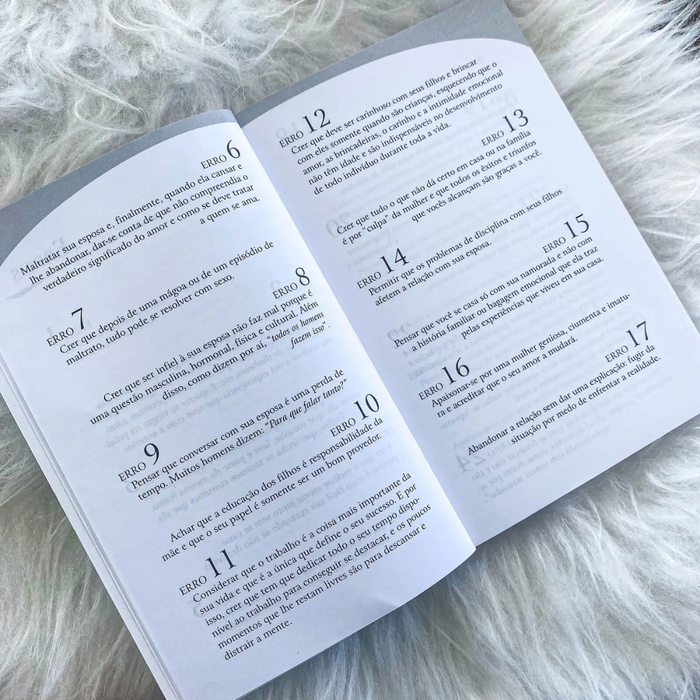 ERRO 6
Maltratar sua esposa e, finalmente, quando ela cansar e
lhe abandonar, dar-se conta de que não compreendia o
verdadeiro significado do amor e como se deve tratar
a quem se ama.
ERRO 7
Crer que depois de uma mágoa ou de um episódio de
maltrato, tudo pode se resolver com sexo.
ERRO 8
Crer que ser infiel à sua esposa não faz mal porque é
uma questão masculina, hormonal, física e cultural. Além
disso, como dizem por aí, “todos os homens
fazem isso”.
ERRO 9
Pensar que conversar com sua esposa é uma perda de
tempo. Muitos homens dizem: “Para que falar tanto?”
ERRO 10
Achar que a educação dos filhos é responsabilidade da
mãe e que o seu papel é somente ser um bom provedor.
ERRO 11
Considerar que o trabalho é a coisa mais importante da
sua vida e que é a única que define o seu sucesso. E por
isso, crer que tem que dedicar todo o seu tempo dispo-
nível ao trabalho para conseguir se destacar, e os poucos
momentos que lhe restam livres são para descansar e
distrair a mente.
ERRO 12
Crer que deve ser carinhoso com seus filhos e brincar
com eles somente quando são crianças, esquecendo que o
amor, as brincadeiras, o carinho e a intimidade emocional
não têm idade e são indispensáveis no desenvolvimento
de todo indivíduo durante toda a vida.
ERRO 13
Crer que tudo o que não dá certo em casa ou na família
é por “culpa” da mulher e que todos os êxitos e triunfos
que vocês alcançam são graças a você.
ERRO 14
Permitir que os problemas de disciplina com seus filhos
afetem a relação com sua esposa.
ERRO 15
Pensar que você se casa só com sua namorada e não com
a história familiar ou bagagem emocional que ela traz
pelas experiências que viveu em sua casa.
ERRO 16
Apaixonar-se por uma mulher geniosa, ciumenta e imatu-
ra e acreditar que o seu amor a mudará.
ERRO 17
Abandonar a relação sem dar uma explicação: fugir da
situação por medo de enfrentar a realidade.